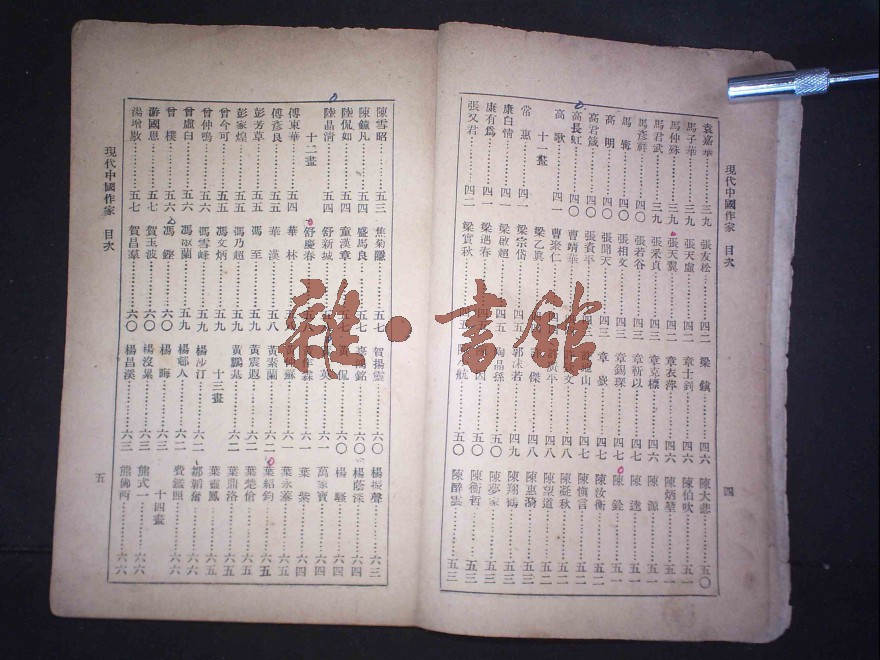 現代中國作家 目次
袁嘉華 三九
馬子華 三九
馬仲殊 三九
馬君武 三九
馬彥祥 四〇
馬寧 四〇
高明 四〇
高君箴 四〇
高長虹 四〇
高歌 四一
十一畫
常惠 四一
康白情 四一
康有爲 四一
張又君 四二
張友松 四二
張天廬 四二
張天翼
張釆貞 四三
張若谷 四三
張相文 四三
張聞天 四三
張資平 四三
曹靖華
曹聚仁
梁乙眞
梁宗岱 四五
梁啟超 四五
梁遇春
梁實秋
梁鎮 四六
章士釗 四六
章衣萍 四六
章克標 四六
章靳以 四七
章錫琛 四七
章嶔 四七
山 四七
文 四八
廣平 四八
傑 四八
郭沫若 四九
陶晶孫 五〇
五〇
航 五〇
陳大悲 五〇
陳伯吹 五一
陳炳堃 五一
陳源 五一
陳逵 五一
陳銓 五一
陳汝衡 五二
陳愼言 五二
陳凝秋 五二
陳望道 五二
陳惠漪 五三
陳翔鶴 五三
陳夢家 五三
陳衡哲 五三
陳醉雲 五三
四
陳雪昭 五三
陳鐘凡 五四
陸侃如 五四
陸晶清 五四
十二畫
傅東華 五四
傅彥長 五五
彭芳草 五五
彭家煌 五五
曾今可 五五
曾仲鳴 五五
曾虛白 五六
曾樸 五六
游國恩 五七
湯增敭 五七
焦菊隱 五七
盛馬良 五七
童漢章 五七
舒新城
舒慶春 五八
華林
華漢 五八
馮至 五九
馮乃超 五九
馮文炳 五九
馮雪峰 五九
馮沅蘭 五九
馮鏗 六〇
賀玉波 六〇
賀昌羣 六〇
賀揚靈 六〇
銘 六〇
黃侃 六〇
英 六一
霖 六一
黃仲蘇 六一
黃素蘭 六二
黃震遐 六二
黃鵬基 六二
十三畫
楊沙汀 六二
楊邨人 六二
楊晦 六三
楊沒累 六三
楊昌溪 六三
楊振聲 六三
楊蔭深 六四
楊騷 六四
萬家寶 六四
葉紫 六四
葉永蓁 六五
葉紹鈞 六五
葉楚傖 六五
葉鼎洛 六五
葉靈鳳 六五
鄒韜奮 六六
費鑑照 六六
十四畫
熊式一 六六
熊佛西 六六
現代中國作家 目次
五
雜·書館